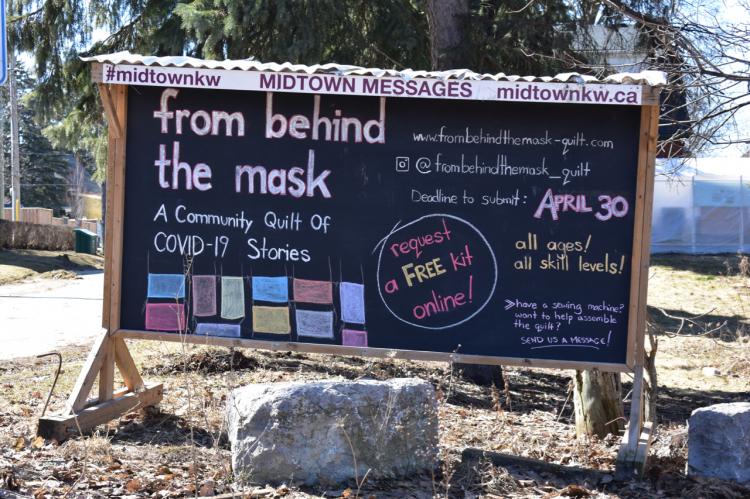 #midtownkw MIDTOWN MESSAGES midtownkw.ca
from behind
the mask
A Community Quilt Of
COVID-19 Stories
www.frombehindthemask-quilt.com
@frombehindthemask_quilt
Deadline to submit: APRIL 30
request
a FREE kit
online!
all ages!
all skill levels!
>have a sewing machine?
want to help assemble
the quilt?
SEND US A MESSAGE!